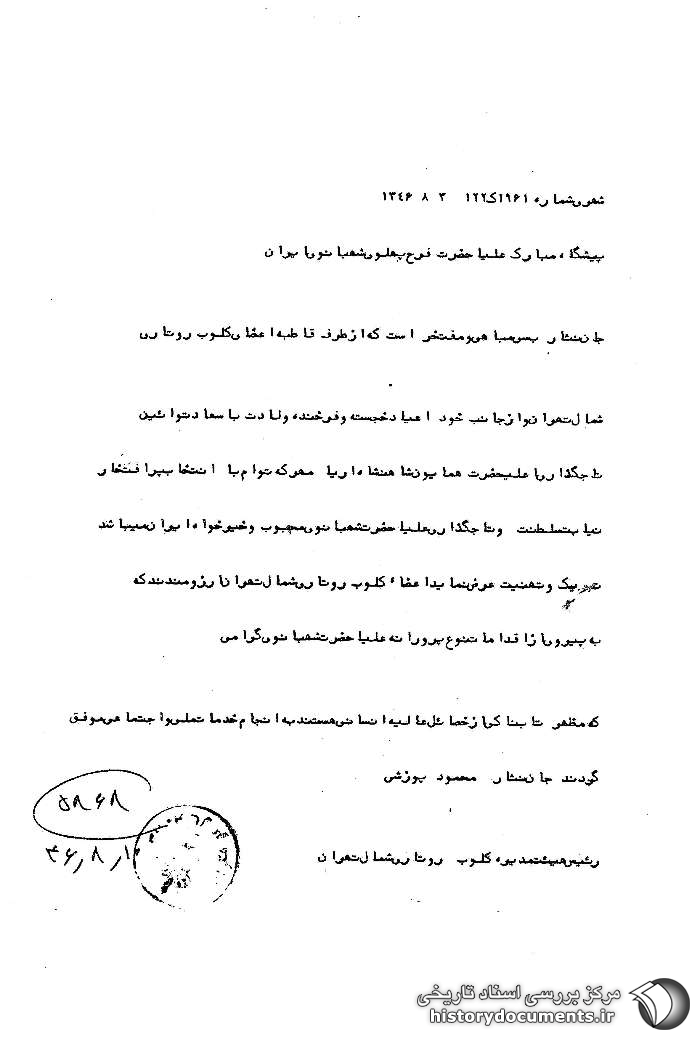 شهری شماره ۱۹۶۱ک۱۲۲ ۳ ۸ ۱۳۴۶
پیشگاه مبارک علیا حضرت فرح پهلوی شهبانوی ایران
جان نثار بس مباهی و مفتخر است که از طرف قاطبه اعضای کلوپ روتاری
شمال تهران و از جانب خود اعیاد خجسته و فرخنده ولادت با سعادت و آئین
تاجگذاری اعلیحضرت همایون شاهنشاه آریا مهر که توام با انتخاب پر افتخار
نیابت سلطنت و تاجگذاری علیا حضرت شهبانوی محبوب و خیرخواه ایران میباشد
تبریک و تهنیت عرض نماید اعضاء کلوپ روتاری شمال تهران آرزومندند که
به پیروی از اقدامات نوع پرورانه علیا حضرت شهبانوی گرامی
که مظهر تابناکی از خصائل عالیه انسانی هستند به انجام خدمات ملی و اجتماعی موفق
گردند جان نثار محمود پوزشی
۵۸۶۸
رئیس هیئت مدیره کلوپ روتاری شمال تهران
مرکز بررسی اسناد تاریخی
historydocuments.ir